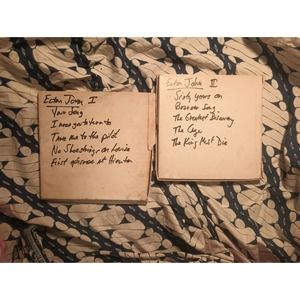 Elton John I
Your Song
I need you to turn to
Take me to the pilot
No Shoestrings on Louise
First episode at Hienton
Elton John II
Sixty years on
Border Song
The Greatest Discovery
The Cage
The King Must Die